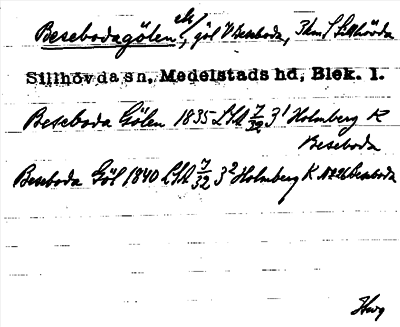 Besebodagölen, göl V Beseboda, 3 km S Sillhövda
Sillhövda sn, Medelstads hd, Blek. l.
Beseboda Gölen 1835 LSA 7/32 3¹ Holmberg K
Beseboda
Beseboda Göl 1840 LSA 7/32 3² Holmberg K
Hwg